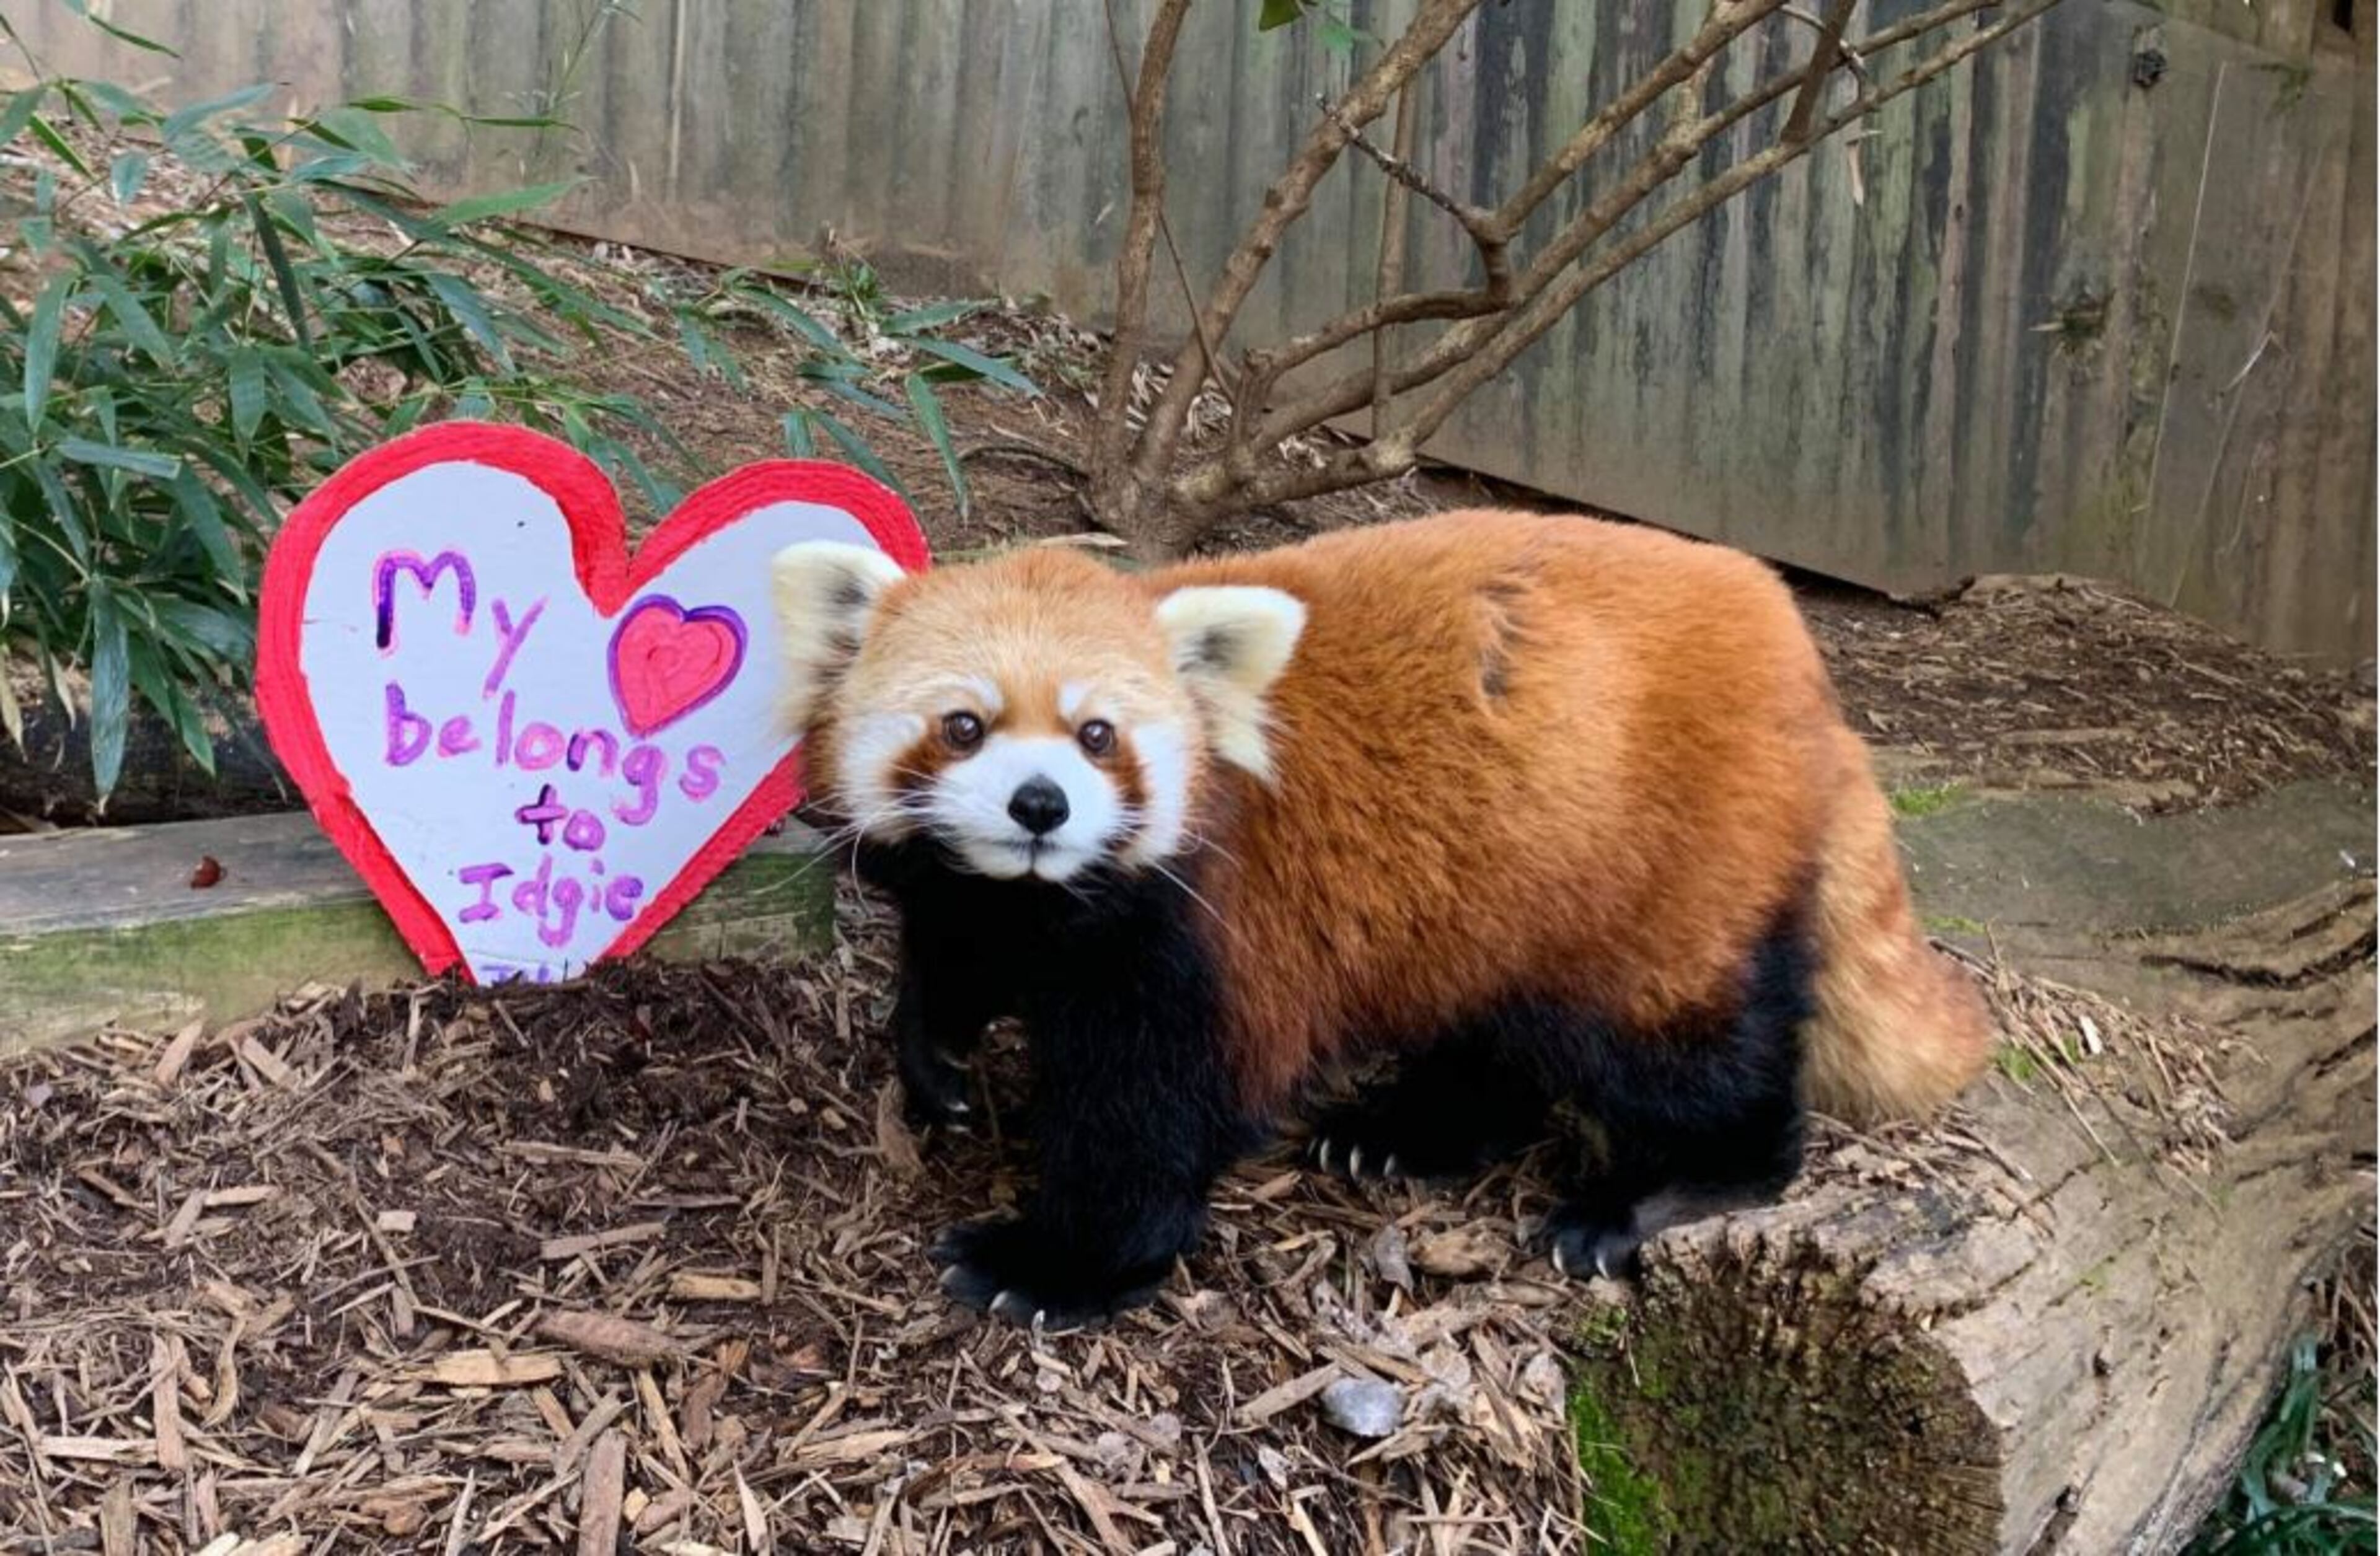 My
belongs
to
Idgie